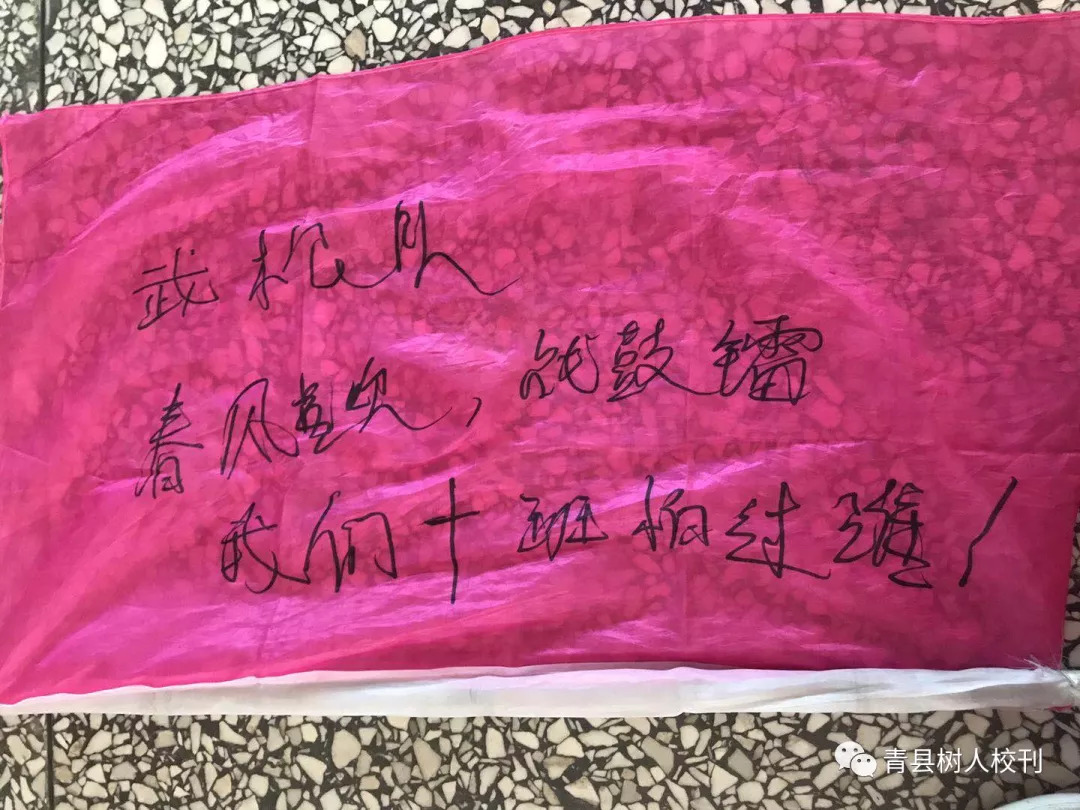 武根队
春风吹，战鼓镭
我们十班怕过谁！
青县树人校刊